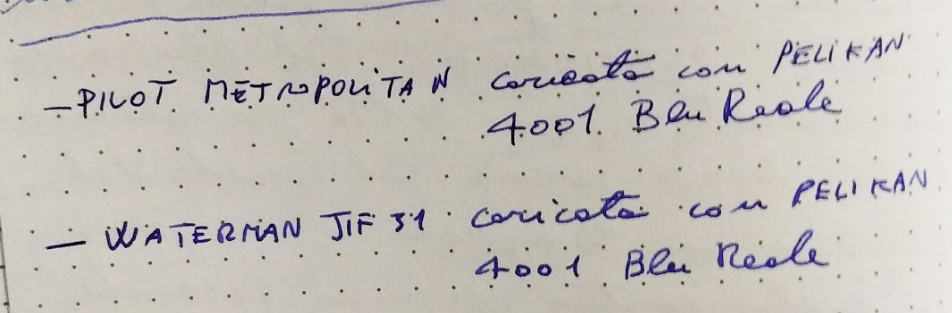 — PILOT METROPOLITAN caricata con PELIKAN
4001 Blu Reale
— WATERMAN JIF 31 caricata con PELIKAN
4001 Blu Reale